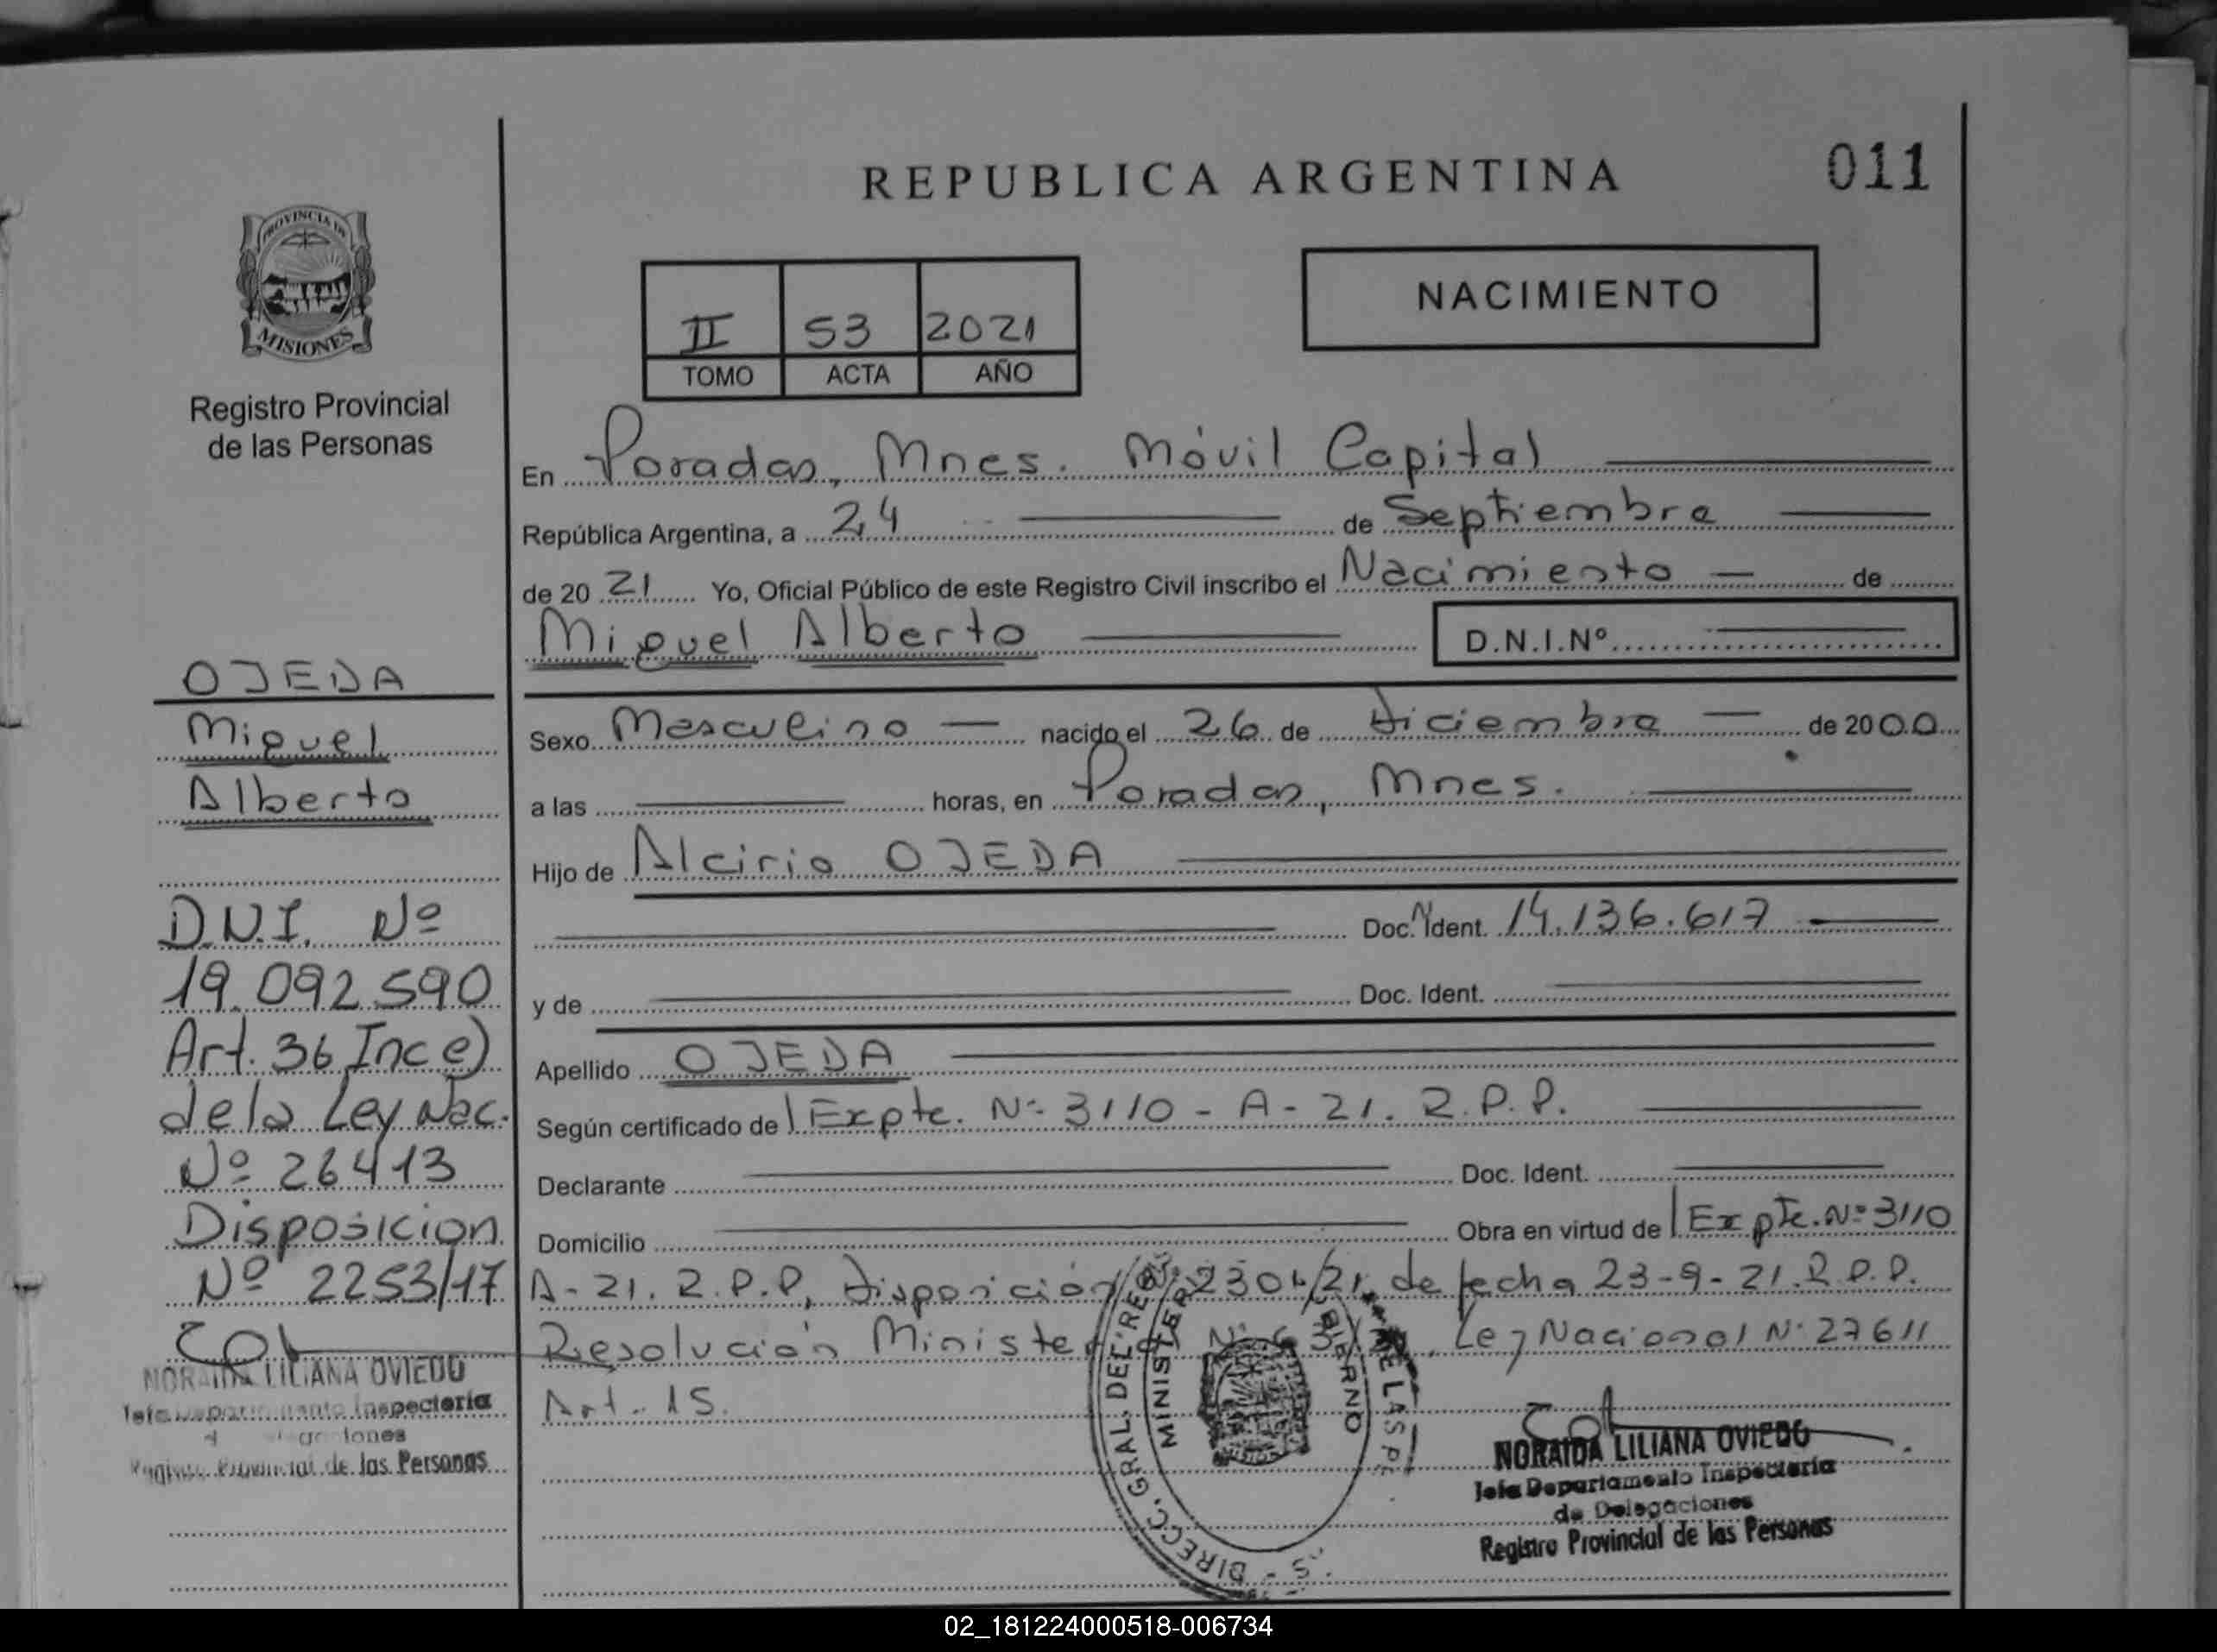 REPUBLICA ARGENTINA
011
PROVINCIA DE
MISIONES
Registro Provincial
de las Personas
II 53 2021
TOMO ACTA AÑO
NACIMIENTO
En Posadas, Mnes. Móvil Capital
República Argentina, a 24 de Septiembre
de 20 21 Yo, Oficial Público de este Registro Civil inscribo el Nacimiento de
Miguel Alberto D.N.I.Nº
Sexo Masculino nacido el 26 de diciembre de 2000
a las horas, en Posadas, Mnes.
Hijo de Alcirio OJEDA
Doc. Nº Ident. 14.136.617
y de Doc. Ident.
Apellido OJEDA
Según certificado de Expte. Nº 3110 - A - 21. R.P.P.
Declarante Doc. Ident.
Domicilio Obra en virtud de Expte. Nº 3110
A - 21. R.P.P, disposición Nº 2301/21, de fecha 23-9-21. R.P.P.
Resolución Nº Ley Nacional Nº 27611
Art. 15.
OJEDA
Miguel
Alberto
D.N.I. Nº
19.092.590
Art. 36 Inc e)
de la Ley Nac.
Nº 26413
Disposicion
Nº 2253/17
NORAIDA LILIANA OVIEDO
Jefa Departamento Inspectoria
de Delegaciones
Registro Provincial de las Personas
DIRECC. GRAL. DEL REG.
DE LAS
MINISTER
GOBIERNO
NORAIDA LILIANA OVIEDO
Jefa Departamento Inspectoria
de Delegaciones
Registro Provincial de las Personas
02_181224000518-006734